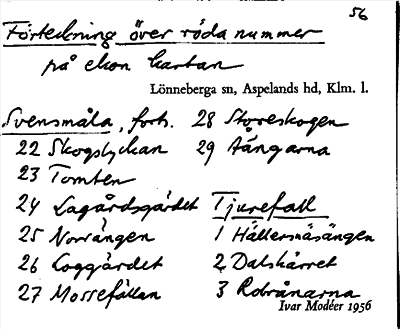 56
Förteckning över röda nummer
på ekon. kartan
Lönneberga sn, Aspelands hd, Klm. l.
Svensmåla, forts.
22 Skogslyckan
23 Tomten
24 Lagårdsgärdet
25 Norrängen
26 Loggärdet
27 Mossefällan
28 Storeskogen
29 Hängarna
Tjurefall
1 Hällersnäsängen
2 Dalskärret
3 Rotvånarna
Ivar Modéer 1956